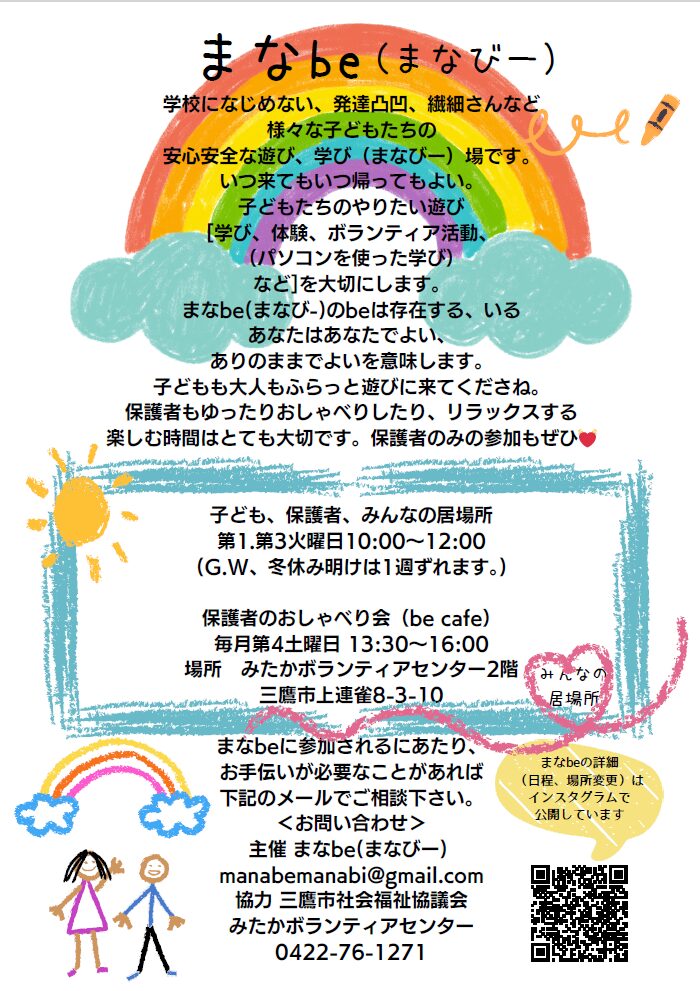 まなbe(まなびー)
学校になじめない、発達凸凹、繊細さんなど
様々な子どもたちの
安心安全な遊び、学び（まなびー）場です。
いつ来てもいつ帰ってもよい。
子どもたちのやりたい遊び
[学び、体験、ボランティア活動、
（パソコンを使った学び）
など]を大切にします。
まなbe(まなび-)のbeは存在する、いる
あなたはあなたでよい、
ありのままでよいを意味します。
子どもも大人もふらっと遊びに来てくださね。
保護者もゆったりおしゃべりしたり、リラックスする
楽しむ時間はとても大切です。保護者のみの参加もぜひ
子ども、保護者、みんなの居場所
第1.第3火曜日10:00～12:00
（G.W、冬休み明けは1週ずれます。）
保護者のおしゃべり会（be cafe）
毎月第4土曜日 13:30～16:00
場所　みたかボランティアセンター2階
三鷹市上連雀8-3-10
みんなの
居場所
まなbeに参加されるにあたり、
お手伝いが必要なことがあれば
下記のメールでご相談下さい。
＜お問い合わせ＞
主催 まなbe(まなびー）
manabemanabi@gmail.com
協力 三鷹市社会福祉協議会
みたかボランティアセンター
0422-76-1271
まなbeの詳細
（日程、場所変更）は
インスタグラムで
公開しています